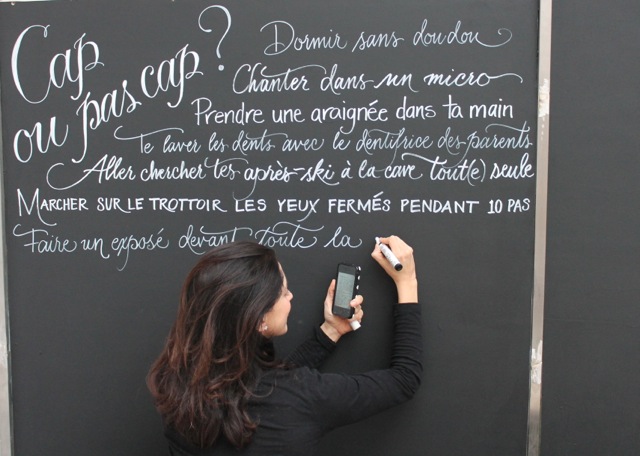 Cap
ou pas cap ?
Dormir sans doudou
Chanter dans un micro
Prendre une araignée dans ta main
Te laver les dents avec le dentifrice des parents
Aller chercher tes après-ski à la cave tout(e) seule
MARCHER SUR LE TROTTOIR LES YEUX FERMÉS PENDANT 10 PAS
Faire un exposé devant toute la